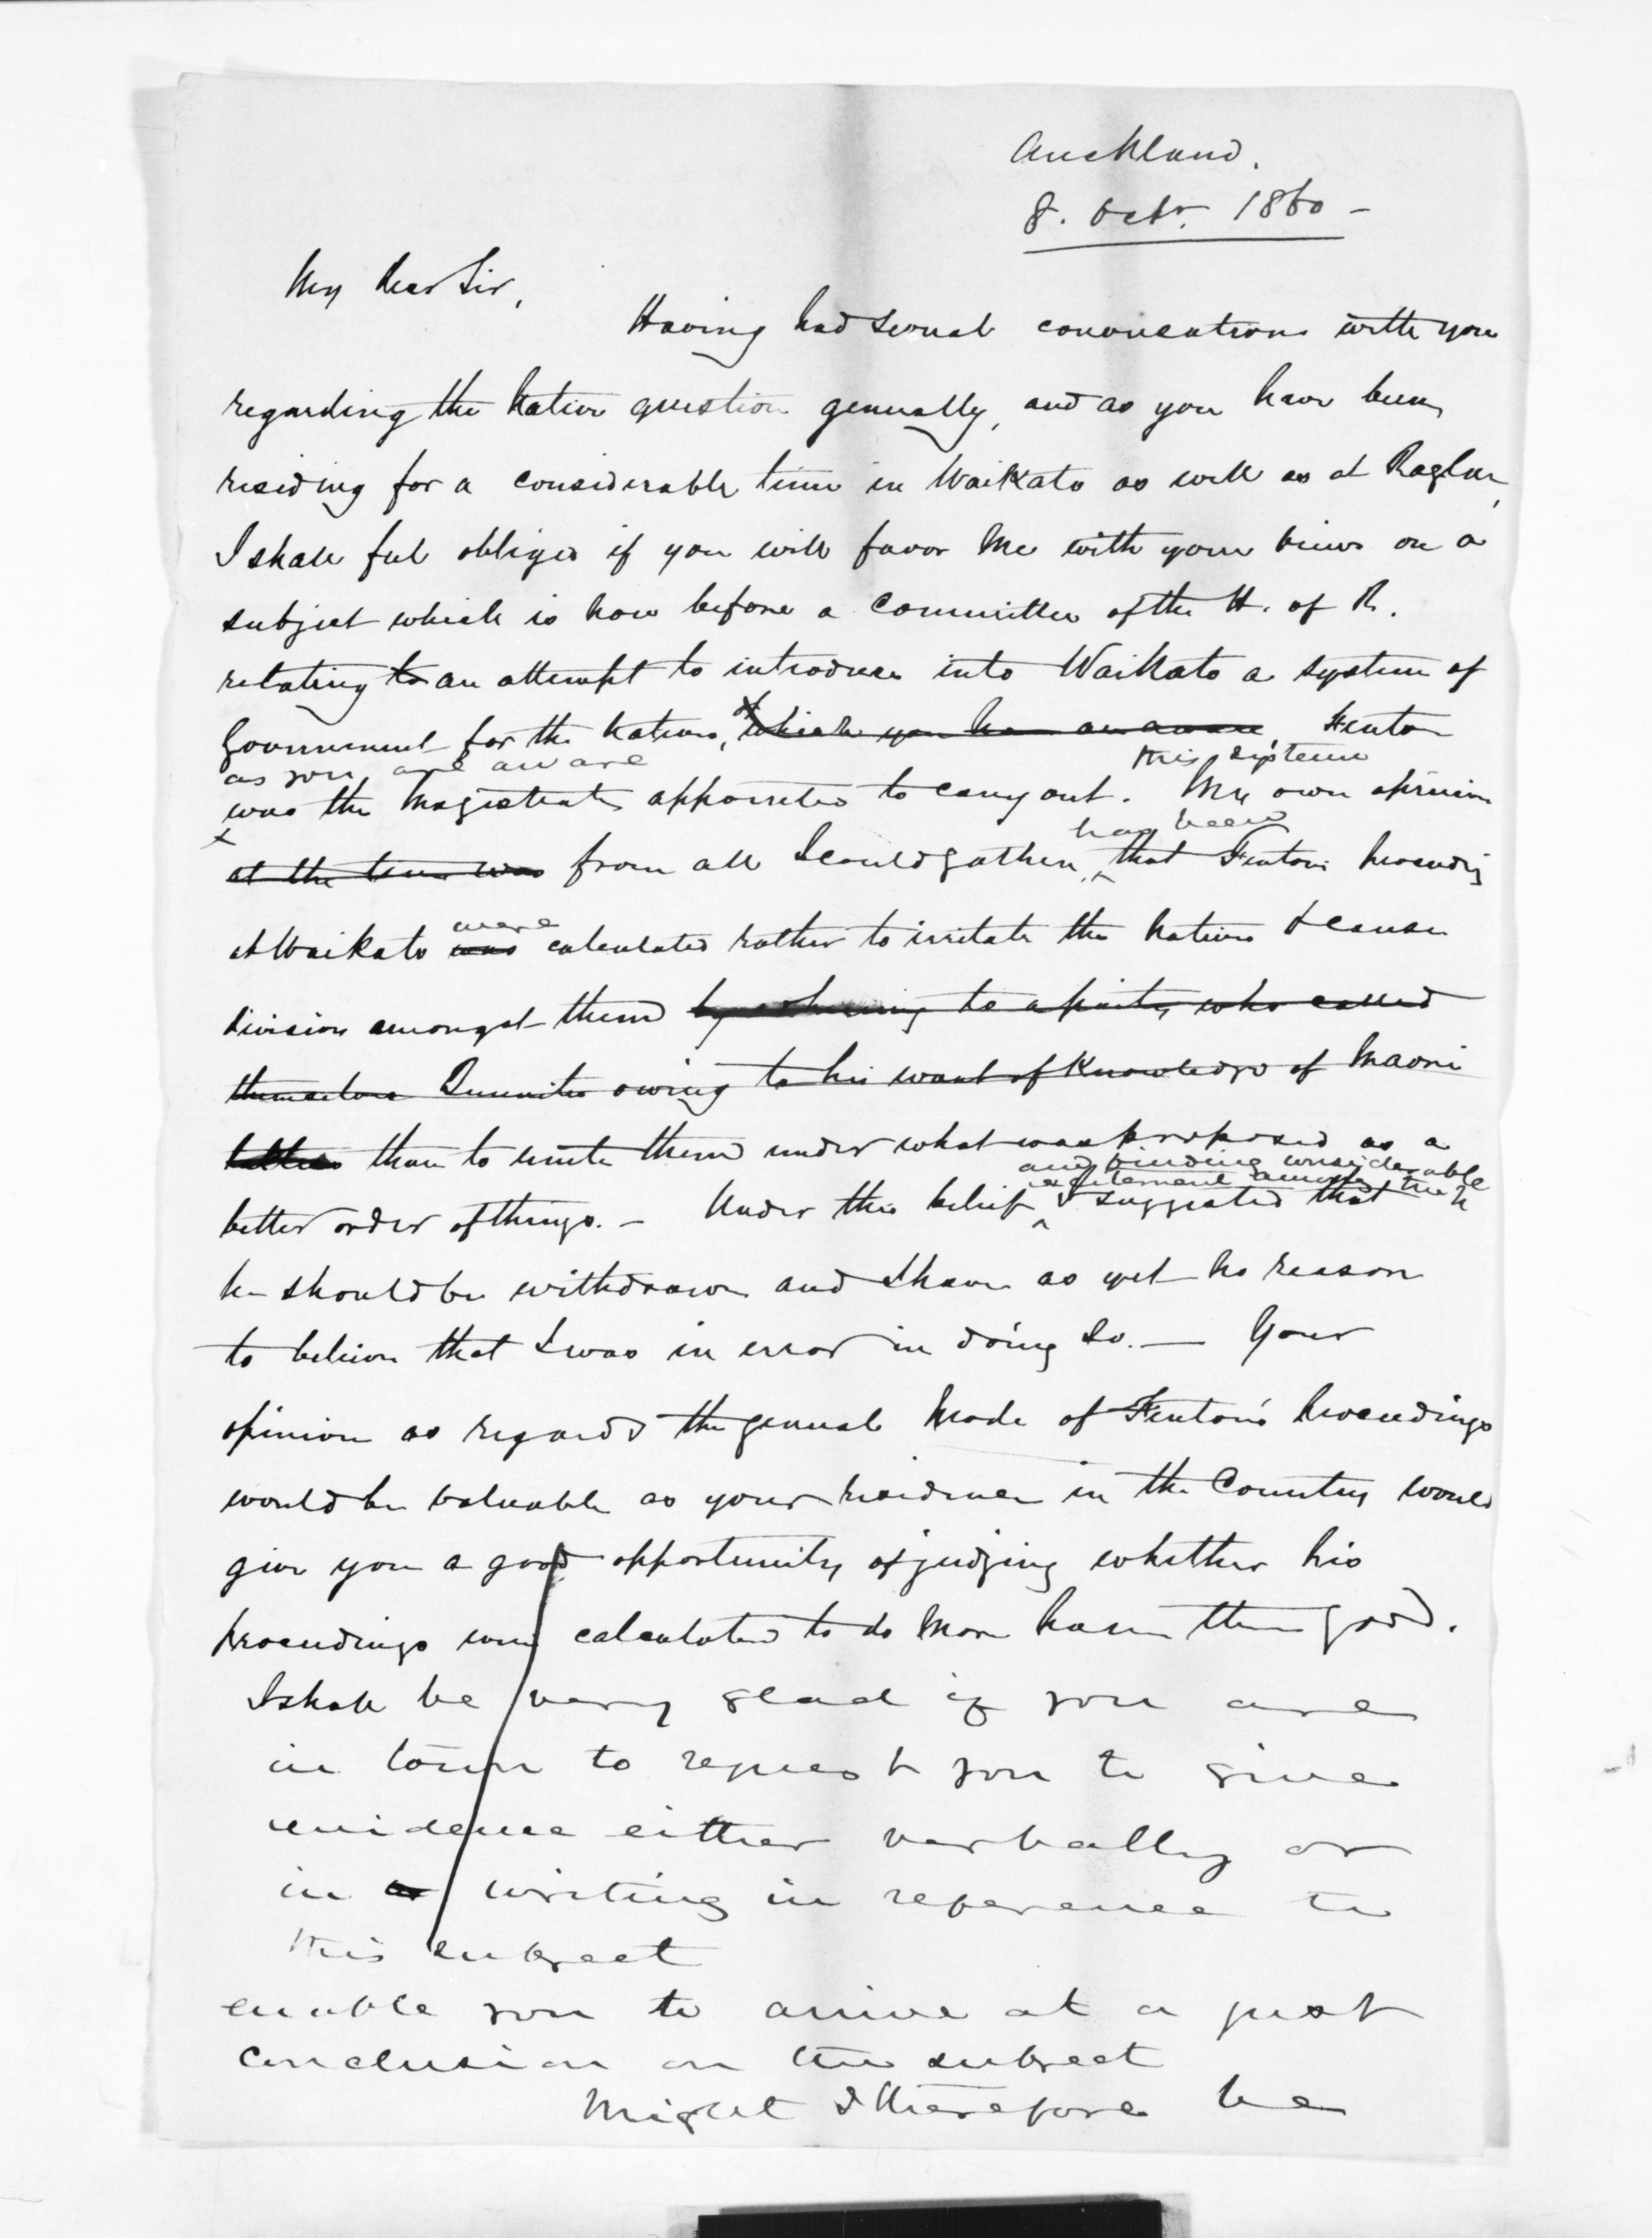 Auckland.
8. Octr. 1860 -
My dear Sir,
Having had several conversations with you
regarding the Native question generally, and as you have been
residing for a considerable time in Waikato as well as at Raglan,
I shall feel obliged if you will favor me with your views on a
subject which is now before a Committee of the H. of R.
relating to an attempt to introduce into Waikato a system of
Government for the Natives, of which you are aware, Fenton
as you are aware this system
was the Magistrate appointed to carry out. My own opinion
has been
at the time was from all I could gather, that Fenton's proceedings
were
at Waikato was calculated rather to irritate the Natives & cause
division amongst them by adhering to a party who called
themselves Queenites owing to his want of Knowledge of Maori
than to unite them under what was proposed as a
and finding considerable
excitement amongst the
better order of things. - Under this belief I suggested that
he should be withdrawn and I have as yet no reason
to believe that I was in error in doing so. — Your
opinion as regards the general mode of Fenton's proceedings
would be valuable as your residence in the Country would
give you a good opportunity of judging whether his
proceedings were calculated to do more harm than good.
I shall be very glad if you are
in town to request you to give
evidence either verbally or
in writing in reference to
this subject
enable you to arrive at a just
conclusion on the subject
Might I therefore be